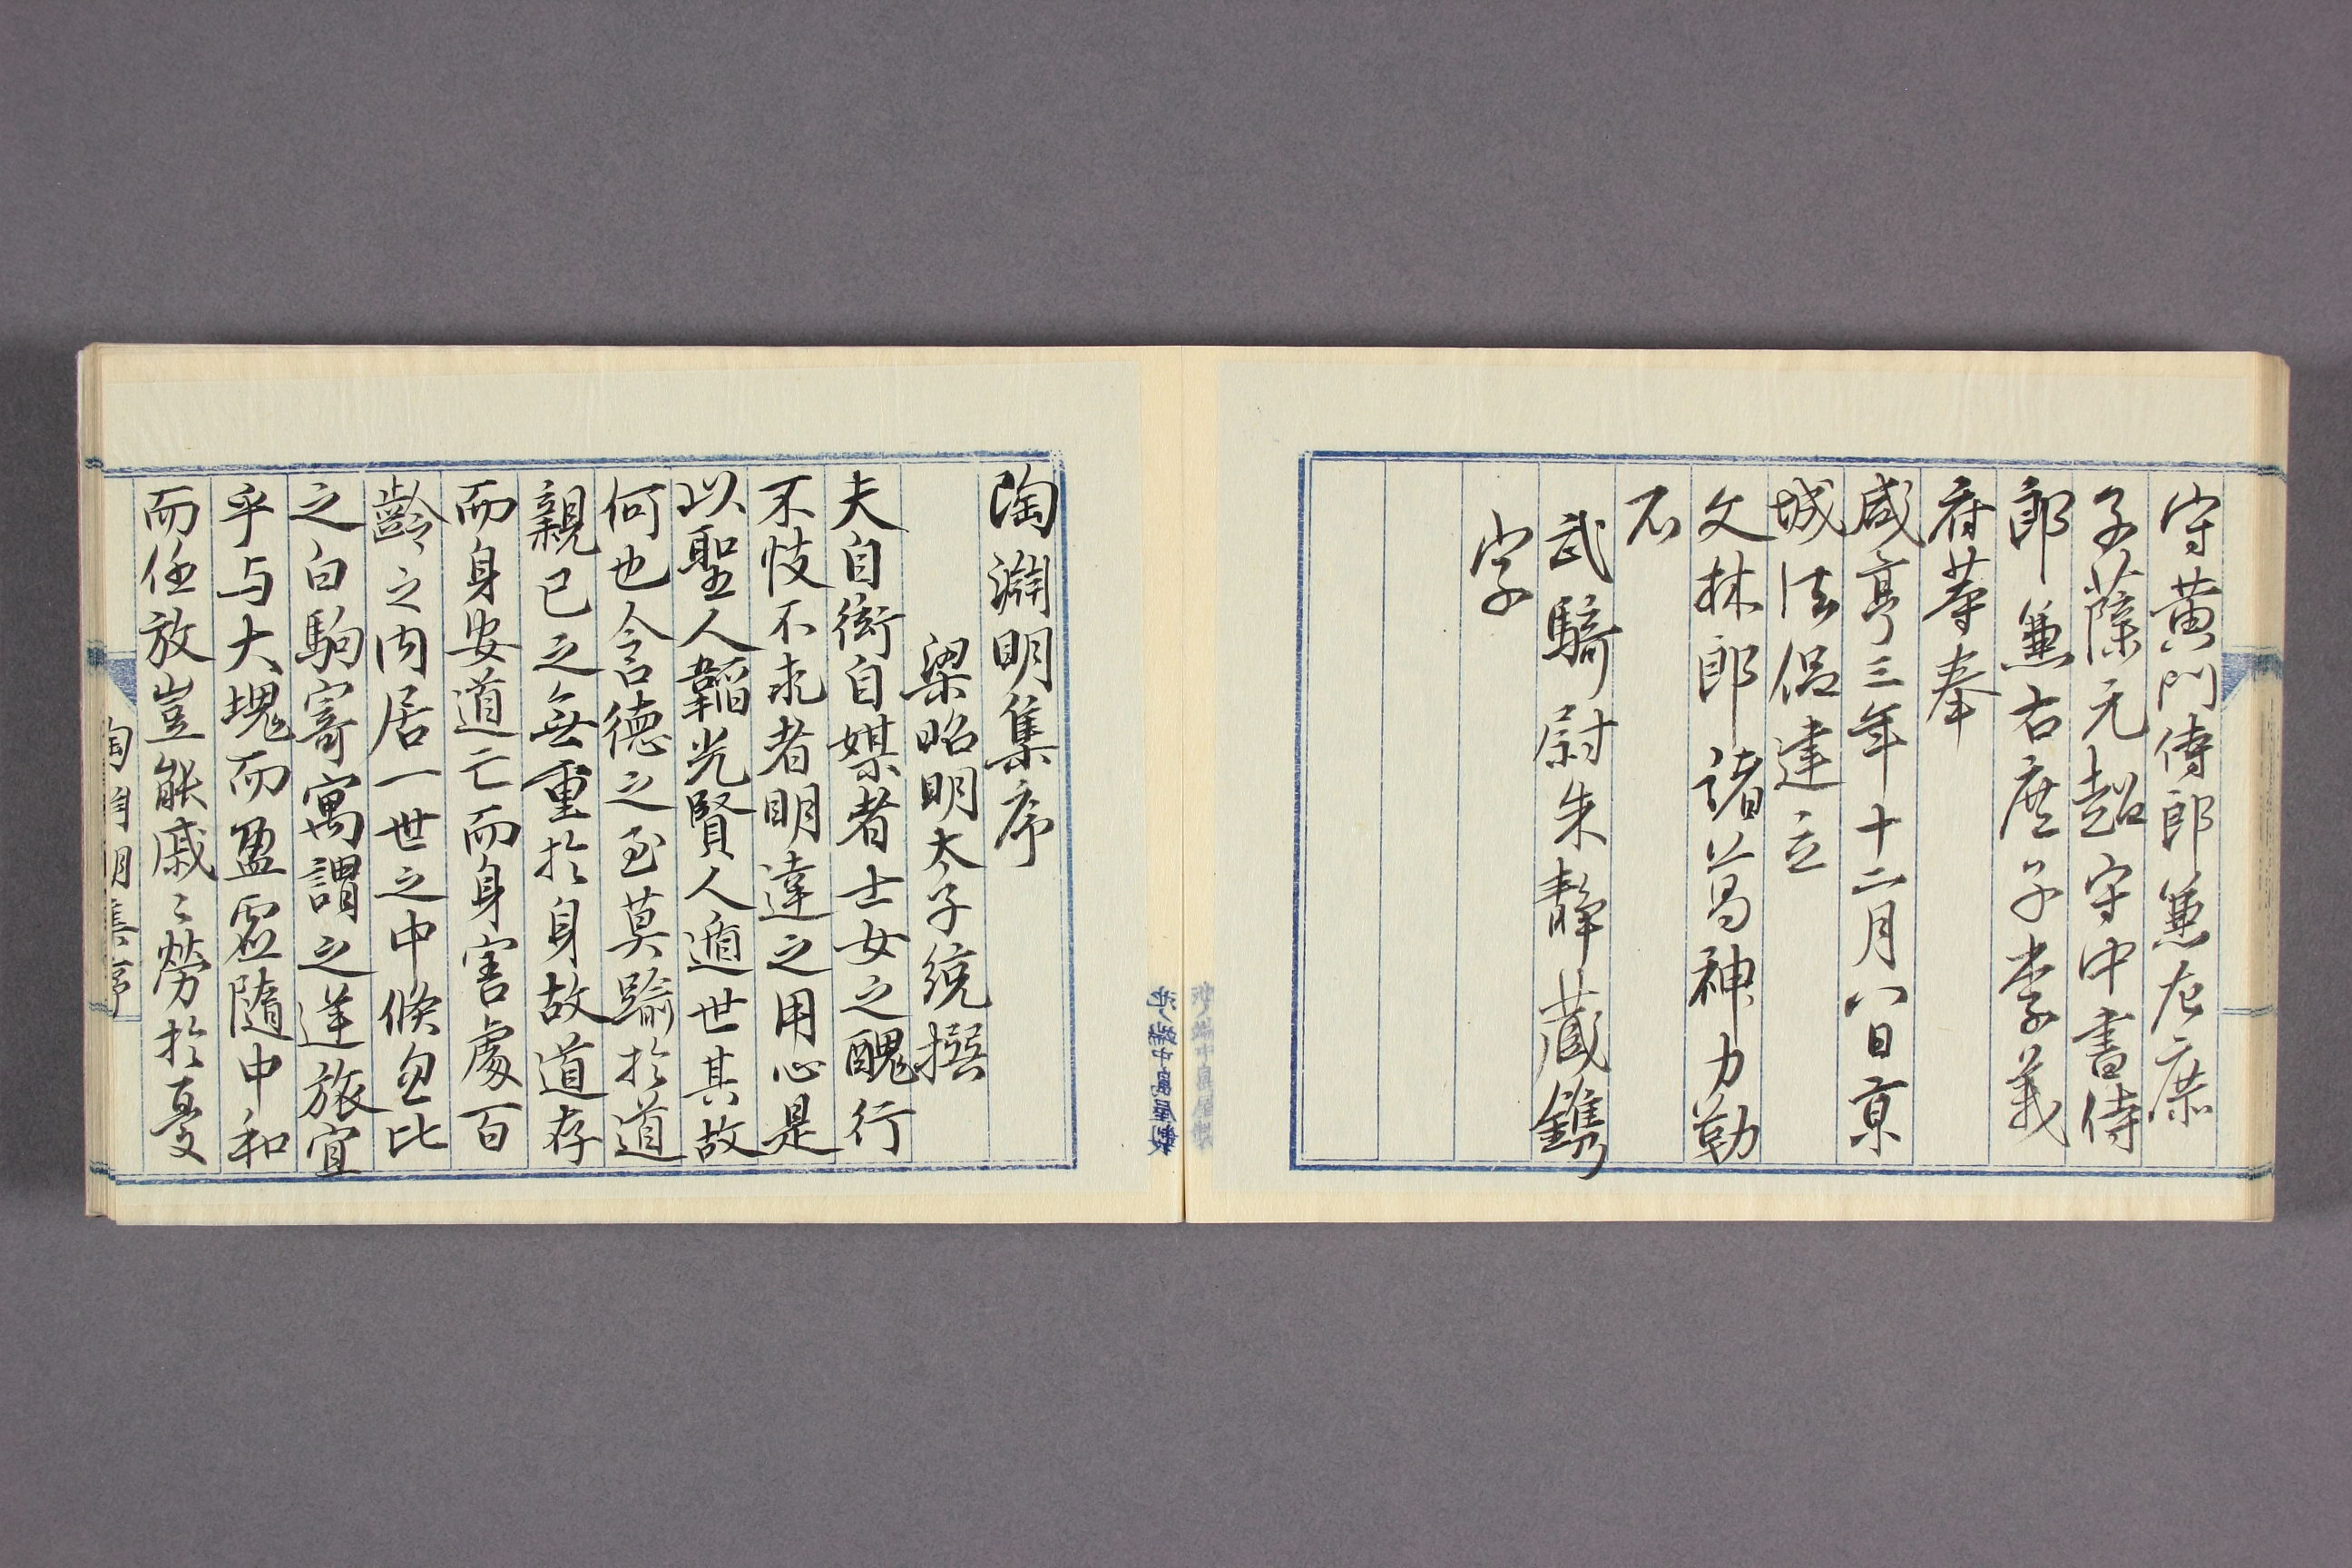 守黄門侍郎兼左庶
子薛元超守中書侍
郎兼右庶子李義
府等奉
咸亨三年十二月八日京
城法侶建立
文林郎諸葛神力勒
石
武騎尉朱靜藏鐫
字
陶淵明集序
梁昭明太子統撰
夫自衒自媒者士女之醜行
不忮不求者明達之用心是
以聖人韜光賢人遁世其故
何也含德之至莫踰於道
親已之無重於身故道存
而身安道亡而身害處百
齡之內居一世之中倏忽比
之白駒寄寓謂之逆旅宜
乎与大塊而盈虛隨中和
而任放豈能戚〻勞於憂
陶淵明集序